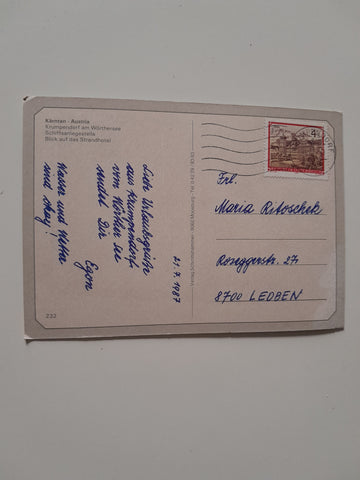 Kärnten - Austria
Krumpendorf am Wörthersee
Schiffsanlegestelle
Blick auf das Strandhotel
21.7.1987
Liebe Urlaubsgrüße
aus Krumpendorf
vom Wörther See
sendet Dir
Egon
Wasser und Wetter
sind okay!
232
4
Frl.
Maria Ritoschek
Roseggerstr. 27
8700 LEOBEN